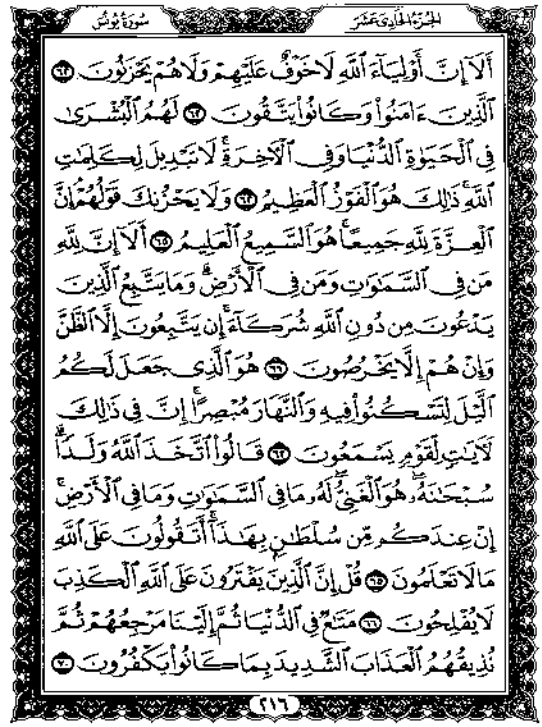 الجُزْءُ الحَادِي عَشَر
سُورَةُ يُونُسَ
أَلَآ إِنَّ أَوْلِيَآءَ ٱللَّهِ لَا خَوْفٌ عَلَيْهِمْ وَلَا هُمْ يَحْزَنُونَ ٦٢
ٱلَّذِينَ ءَامَنُوا۟ وَكَانُوا۟ يَتَّقُونَ ٦٣ لَهُمُ ٱلْبُشْرَىٰ
فِى ٱلْحَيَوٰةِ ٱلدُّنْيَا وَفِى ٱلْءَاخِرَةِ ۚ لَا تَبْدِيلَ لِكَلِمَٰتِ
ٱللَّهِ ۚ ذَٰلِكَ هُوَ ٱلْفَوْزُ ٱلْعَظِيمُ ٦٤ وَلَا يَحْزُنكَ قَوْلُهُمْ ۘ إِنَّ
ٱلْعِزَّةَ لِلَّهِ جَمِيعًا ۚ هُوَ ٱلسَّمِيعُ ٱلْعَلِيمُ ٦٥ أَلَآ إِنَّ لِلَّهِ
مَن فِى ٱلسَّمَٰوَٰتِ وَمَن فِى ٱلْأَرْضِ ۗ وَمَا يَتَّبِعُ ٱلَّذِينَ
يَدْعُونَ مِن دُونِ ٱللَّهِ شُرَكَآءَ ۚ إِن يَتَّبِعُونَ إِلَّا ٱلظَّنَّ
وَإِنْ هُمْ إِلَّا يَخْرُصُونَ ٦٦ هُوَ ٱلَّذِى جَعَلَ لَكُمُ
ٱلَّيْلَ لِتَسْكُنُوا۟ فِيهِ وَٱلنَّهَارَ مُبْصِرًا ۚ إِنَّ فِى ذَٰلِكَ
لَءَايَٰتٍ لِّقَوْمٍ يَسْمَعُونَ ٦٧ قَالُوا۟ ٱتَّخَذَ ٱللَّهُ وَلَدًا ۗ
سُبْحَٰنَهُۥ ۖ هُوَ ٱلْغَنِىُّ ۖ لَهُۥ مَا فِى ٱلسَّمَٰوَٰتِ وَمَا فِى ٱلْأَرْضِ ۚ
إِنْ عِندَكُم مِّن سُلْطَٰنٍۭ بِهَٰذَآ ۚ أَتَقُولُونَ عَلَى ٱللَّهِ
مَا لَا تَعْلَمُونَ ٦٨ قُلْ إِنَّ ٱلَّذِينَ يَفْتَرُونَ عَلَى ٱللَّهِ ٱلْكَذِبَ
لَا يُفْلِحُونَ ٦٩ مَتَٰعٌ فِى ٱلدُّنْيَا ثُمَّ إِلَيْنَا مَرْجِعُهُمْ ثُمَّ
نُذِيقُهُمُ ٱلْعَذَابَ ٱلشَّدِيدَ بِمَا كَانُوا۟ يَكْفُرُونَ ٧٠
٢١٦